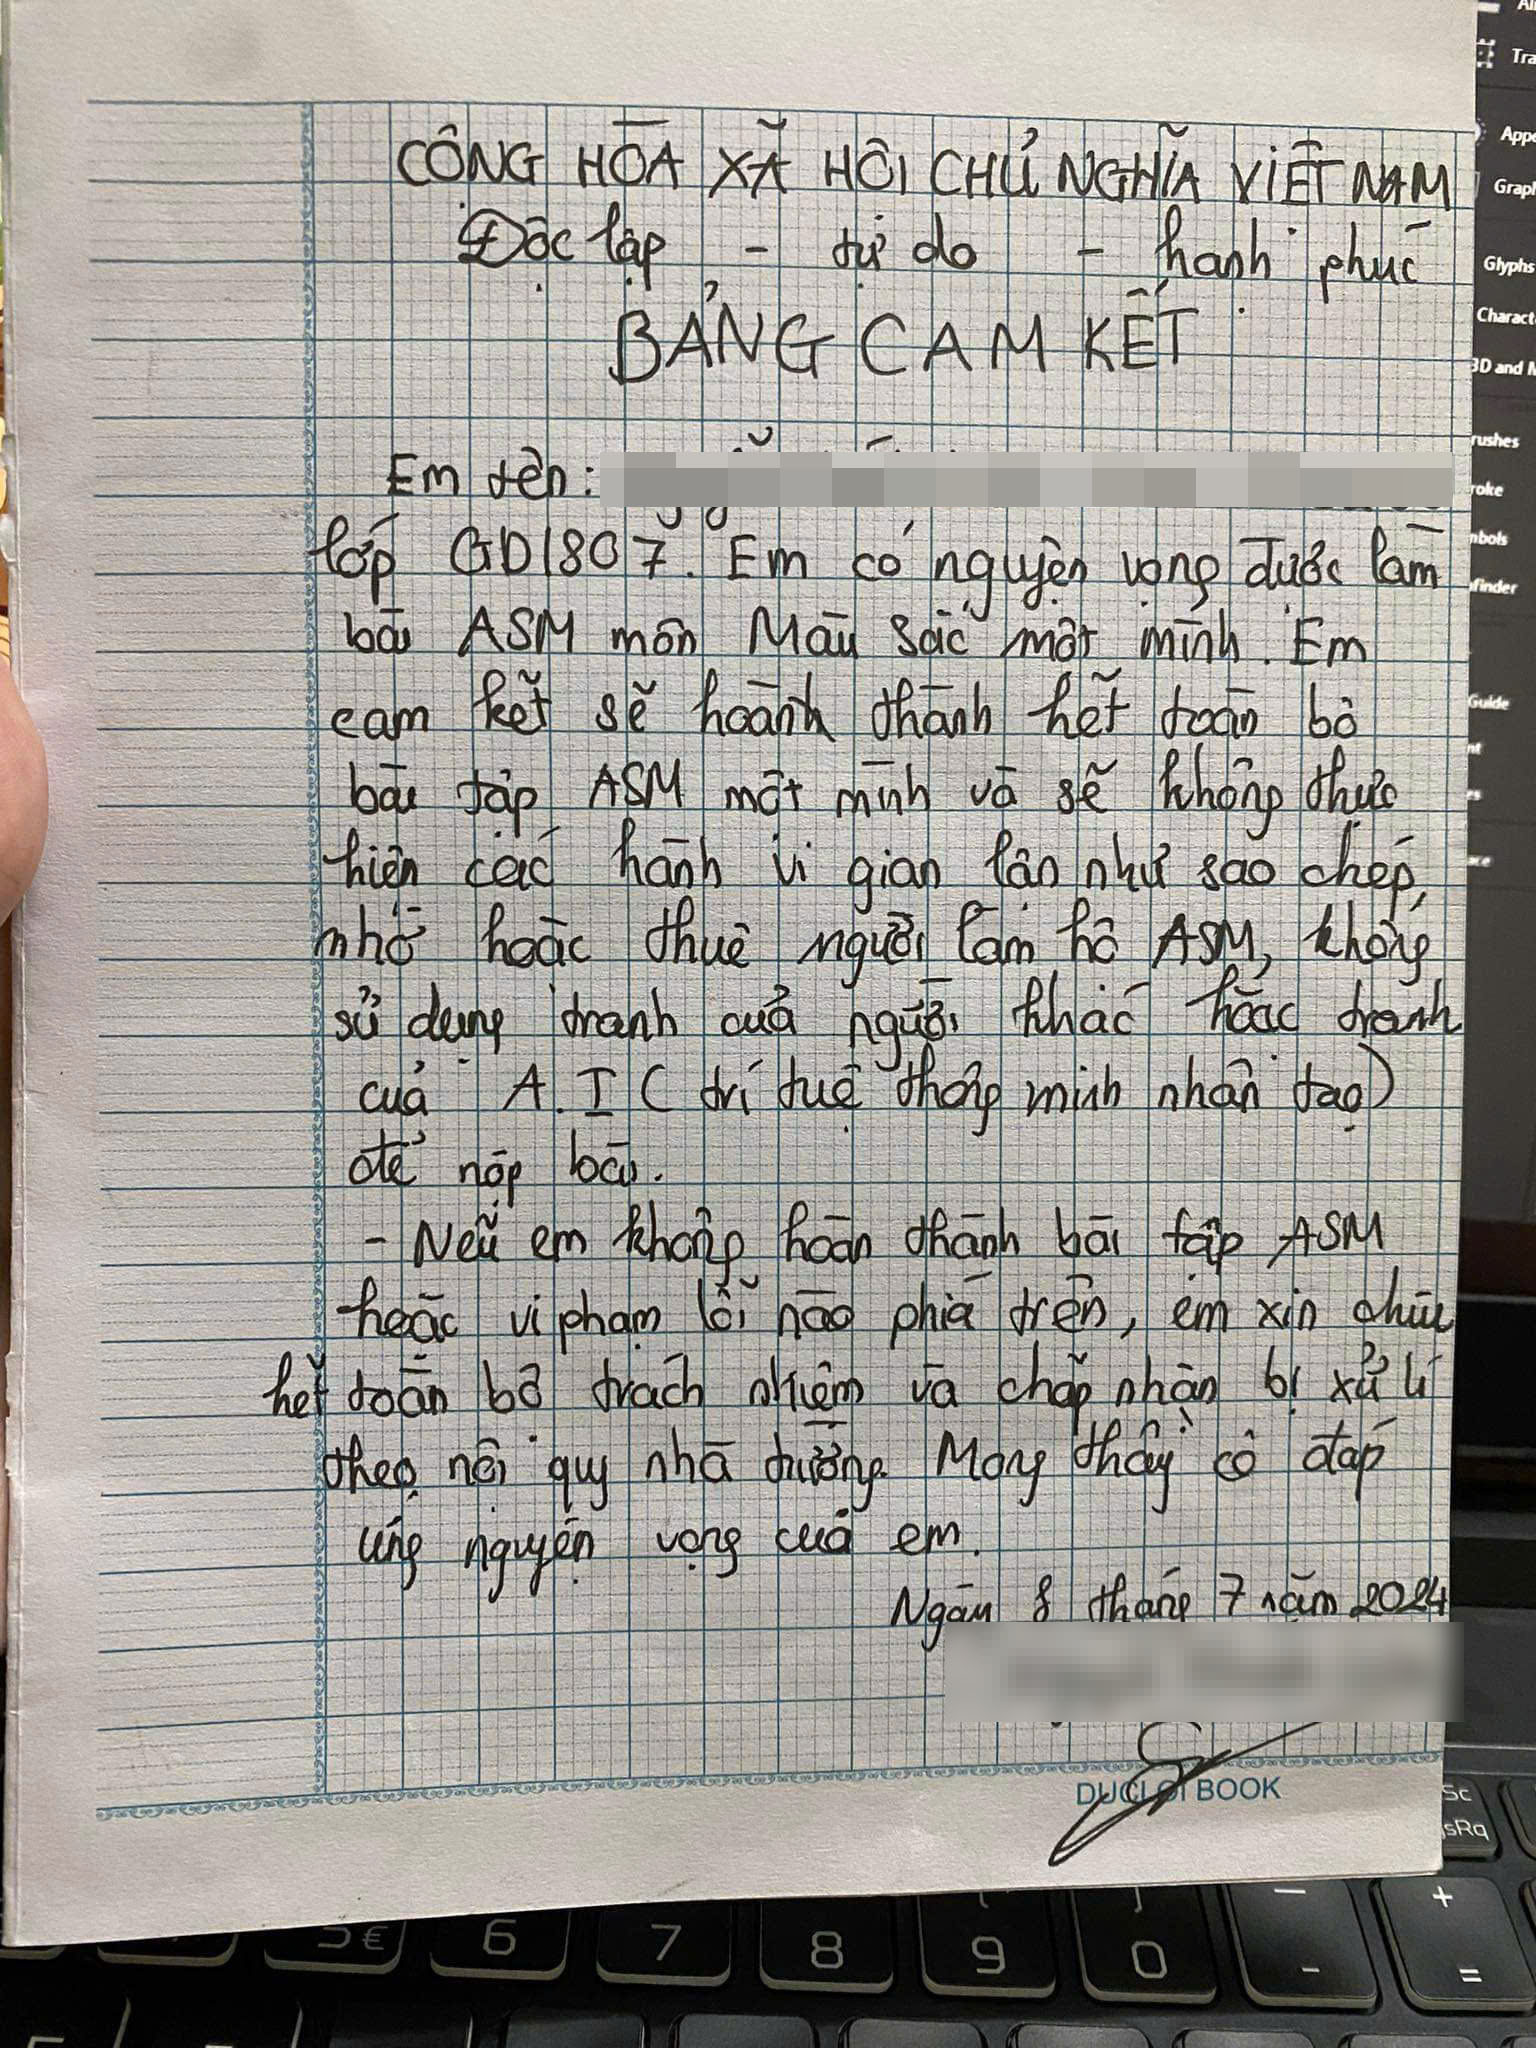 CỘNG HÒA XÃ HỘI CHỦ NGHĨA VIỆT NAM
Độc lập - tự do - hạnh phúc
BẢNG CAM KẾT
Em tên:
lớp GD1807. Em có nguyện vọng được làm
bài ASM môn Màu sắc một mình. Em
cam kết sẽ hoành thành hết toàn bộ
bài tập ASM một mình và sẽ không thực
hiện các hành vi gian lận như sao chép,
nhờ hoặc thuê người làm hộ ASM, không
sử dụng tranh của người khác hoặc tranh
của A.I (trí tuệ thông minh nhân tạo)
để nộp bài.
- Nếu em không hoàn thành bài tập ASM
hoặc vi phạm lỗi nào phía trên, em xin chịu
hết toàn bộ trách nhiệm và chấp nhận bị xử lí
theo nội quy nhà trường. Mong thầy cô đáp
ứng nguyện vọng của em.
Ngày 8 tháng 7 năm 2024
DUCLOI BOOK
Tra
Appe
Grap
Glyphs
Charact
3D and M
rushes
roke
mbols
finder
Guide
Sc
sRq
5 €
6
7
8
9
0
- -
+ =